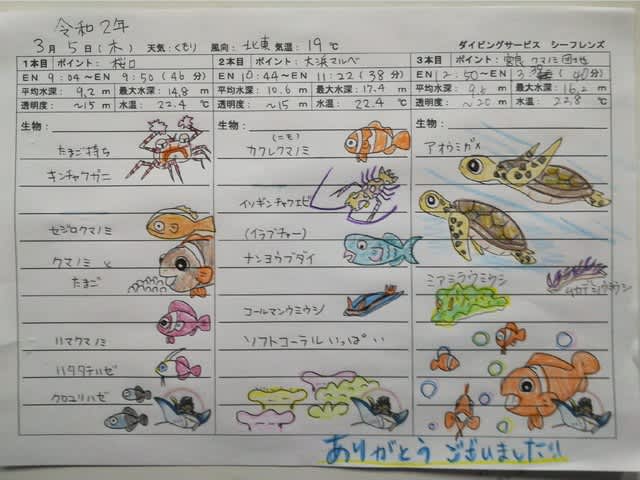 令和2年
3月 5日(木) 天気:くもり 風向:北東 気温:19℃ ダイビングサービス シーフレンズ
1本目 ポイント: 桜口
EN 9:04~EN 9:50(46分)
平均水深: 9.2m 最大水深: 14.8m
透明度: ~15m 水温: 22.4℃
生物:
たまご持ち
キンチャクガニ
セジロクマノミ
クマノミ と
たまご
ハマクマノミ
ハタタテハゼ
クロユリハゼ
2本目 ポイント: 大浜マルベ
EN 10:44~EN 11:22(38分)
平均水深: 10.6m 最大水深: 17.4m
透明度: ~15m 水温: 22.4℃
生物:
(ニモ)
カクレクマノミ
イソギンチャクエビ
(イラブチャー)
ナンヨウブダイ
コールマンウミウシ
ソフトコーラル いっぱい
3本目 ポイント: クマノミ団地
EN 12:50~EN (40分)
平均水深: 最大水深: 16.2m
透明度: ~20m 水温: 22.8℃
生物:
アオウミガメ
ミアミラウミウシ
ムカデミノウミウシ
ありがとう ございました!!